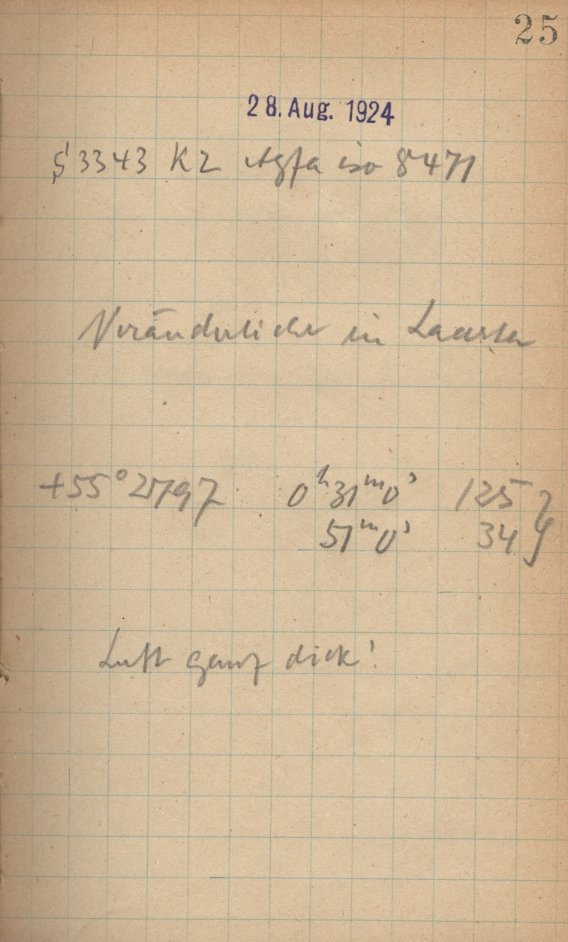 25
28. Aug. 1924
S 3343 K2 Agfa iso 8471
Veränderliche in Lacerta
+55° 2797 0ʰ31ᵐ0ˢ 125
51ᵐ0ˢ 34
Luft ganz dick!